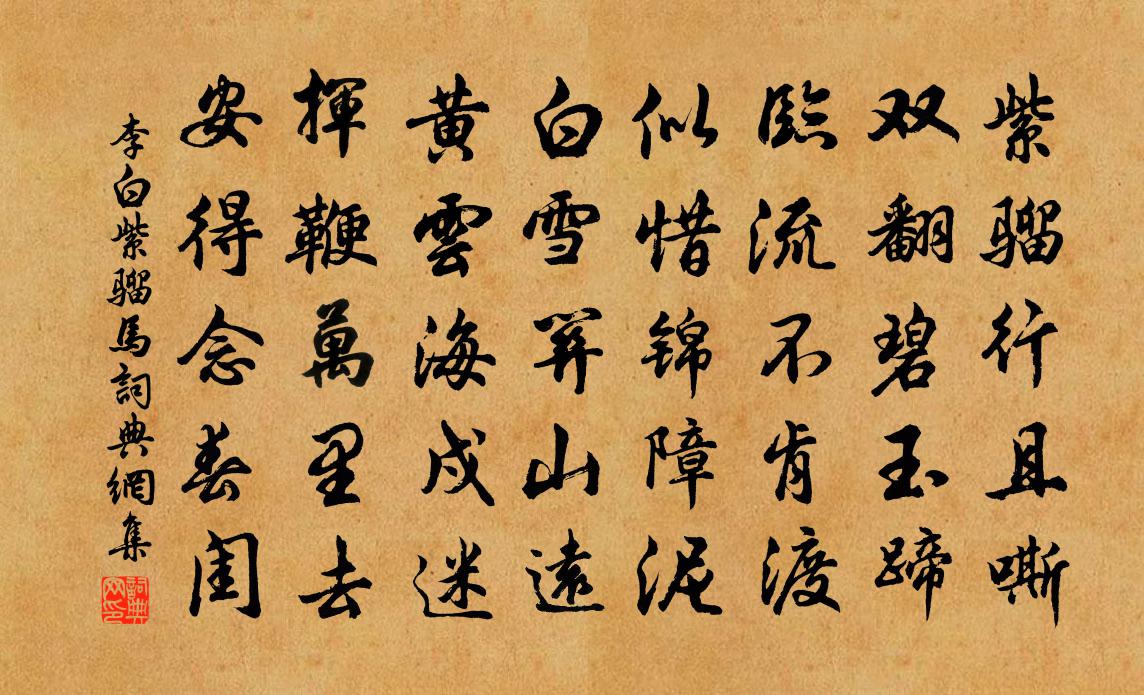 紫骝行且嘶
双翻碧玉蹄
臨流不肯渡
似惜锦障泥
白雪關山遠
黄雲海戍迷
揮鞭萬里去
安得念春闺
李白紫骝馬詞典網集
詞典網印